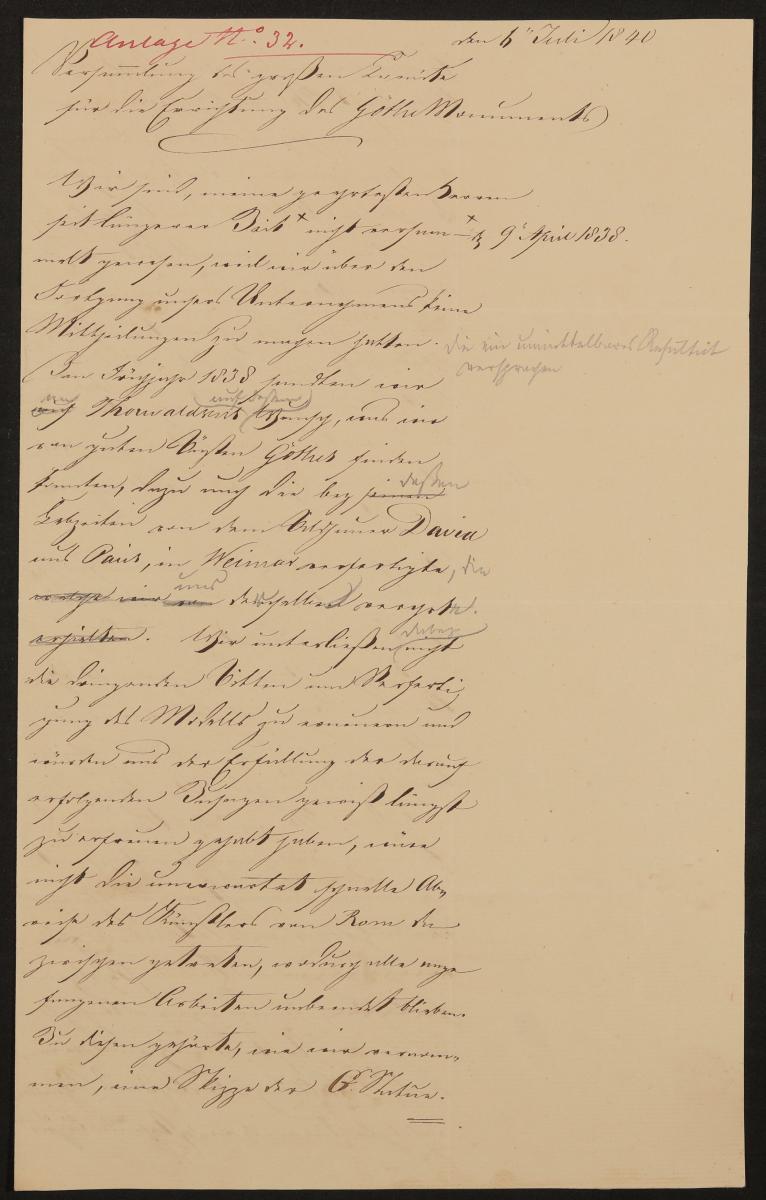 Anlage No. 32.
den 6n Juli 1840
Versammlung des großen Comités
für die Errichtung des Göthe Monuments
Wir sind, meine geehrtesten Herren
seit längerer Zeit × nicht versam-
× 9n April 1838.
melt gewesen, weil wir über den
Fortgang unsers Unternehmens keine
Mittheilungen zu machen hatten.
die ein unmittelbares Resultat
versprachen
Im Frühjahr 1838 sandten wir
an
auf dessen
auf Thorwaldsens Wunsch, was wir
von guten Büsten Göthes finden
konnten, dazu auch die bey seinen
dessen
Lebzeiten von dem Bildhauer David
aus Paris, in Weimar verfertigte, die
welche wir von derselben
uns
erhielten. Wir unterließen nicht
dabey
die dringenden Bitten um Verferti-
gung des Modells zu erneuern und
würden uns der Erfüllung der darauf
erfolgenden Zusagen gewiß längst
zu erfreuen gehabt haben, wäre
nicht die unerwartet schnelle Ab-
reise des Künstlers von Rom da
zwischen getreten, wodurch alle ange
fangenen Arbeiten unbeendet blieben.
Zu diesen gehörte, wie wir vernom-
men, eine Skizze der G. Statue.